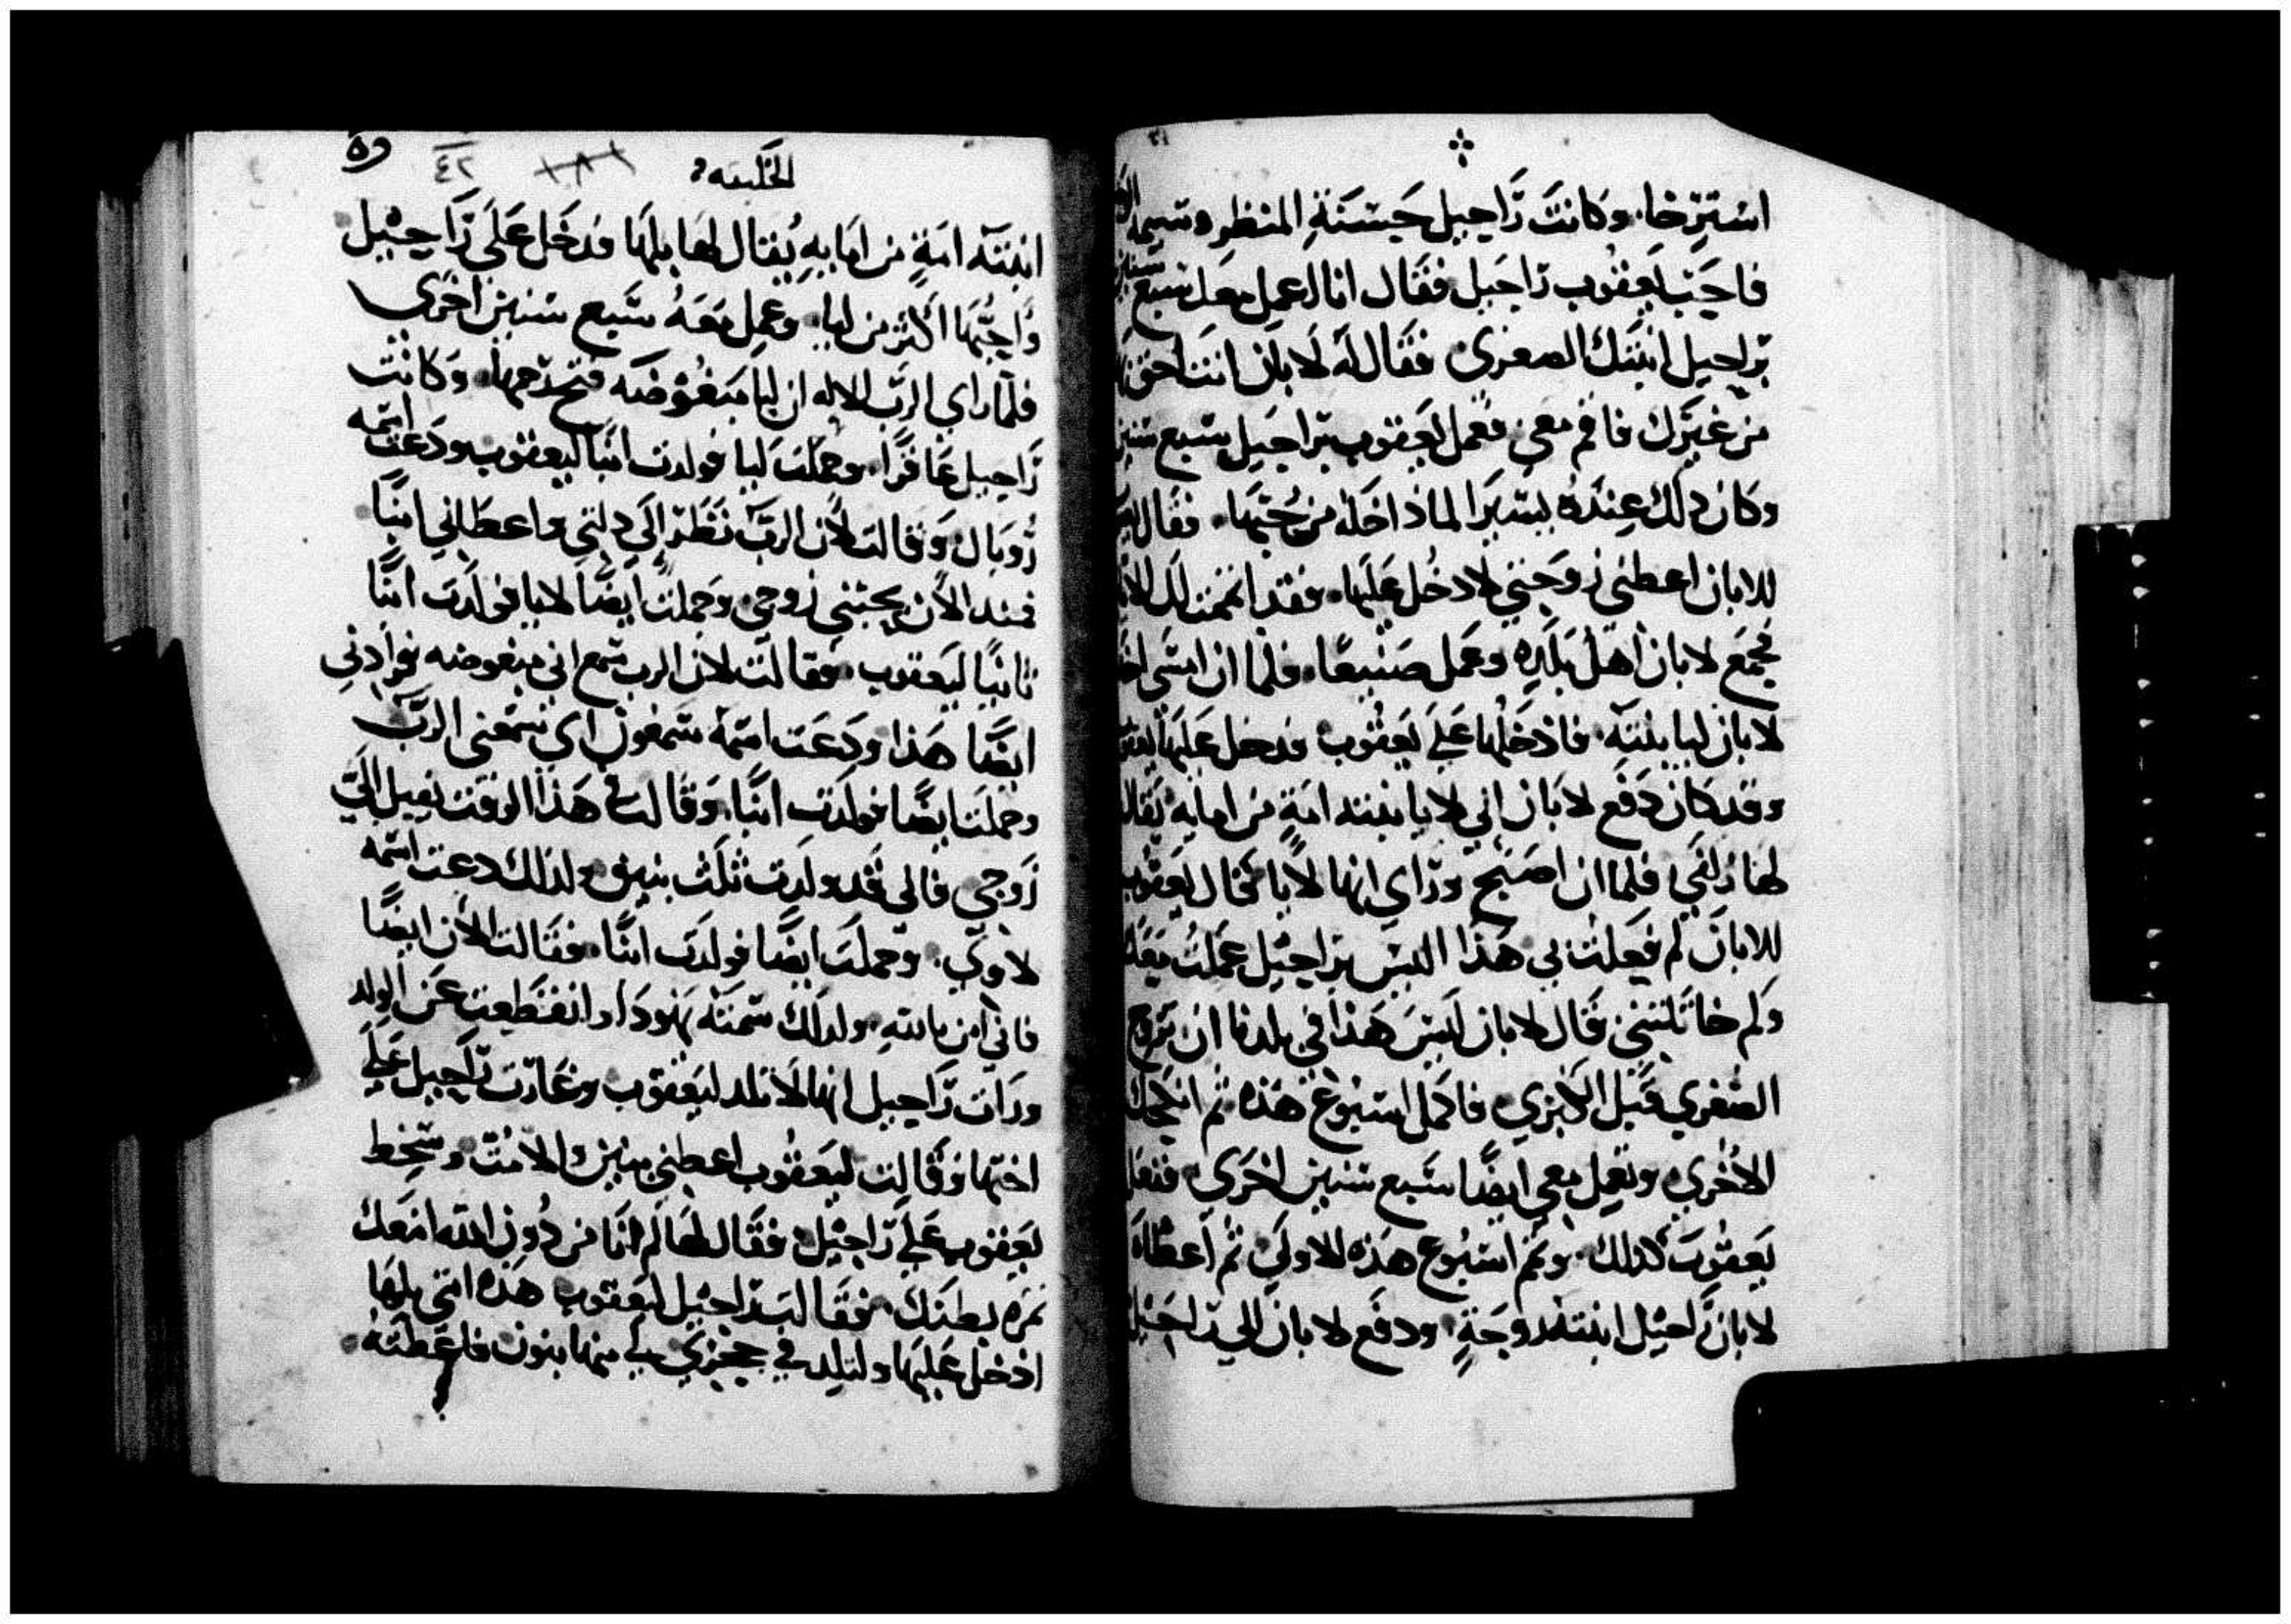 استرخا. وكانت راحيل حسنة المنظر وسيمة
فاحب يعقوب راحيل فقال انا اعمل معك سبع سنين
براحيل ابنتك الصغرى فقال له لابان انت احق بها
من غيرك فاقم معي فعمل يعقوب براحيل سبع سنين
وكان ذلك عنده يسيرا لما داخله من حبها. فقال
للابان اعطني زوجتي لادخل عليها. فقد
فجمع لابان اهل بلده وعمل صنيعا. فلما ان امسى اخذ
لابان ليا بنته. فادخلها على يعقوب فدخل عليها يعقوب
وقد كان دفع لابان الي لايا ابنته امة من امايه يقال
لها زلفي فلما ان اصبح وراي انها لايا قال يعقوب
للابان لم فعلت بي هذا اليس براحيل عملت معك
ولم خاتلتني قال لابان ليس هذا في بلدنا ان تزوج
الصغري قبل الكبري فاكمل اسبوع هذه ثم انكحك
الاخري وتعمل معي ايضا سبع سنين اخري ففعل
يعقوب كذلك. وتم اسبوع هذه الاولي ثم اعطاه
لابان راحيل ابنته زوجة. ودفع لابان الي راحيل
الخليقه
٤٢
ابنته امة من امايه يقال لها بلها فدخل على راحيل
واحبها اكثر من ليا. وعمل معه سبع سنين اخرى
فلما راي الرب الاله ان ليا مبغوضه فتح رحمها. وكانت
راحيل عاقرا. وحملت ليا فولدت ابنا ليعقوب ودعت اسمه
روبال وقالت لان الرب نظر الي ذلتي واعطاني ابنا
فمند الان يحبني زوجي وحملت ايضا لايا فولدت ابنا
ثانيا ليعقوب. فقالت لان الرب سمع اني مبغوضه فزادني
ايضا هذا ودعت اسمه سمعون اي سمعني الرب
وحملت ايضا فولدت ابنا. وقالت في هذا الوقت يميل الي
زوجي فاني قد ولدت ثلث بنين ولذلك دعت اسمه
لاوي. وحملت ايضا فولدت ابنا. فقالت الان ايضا
فاني امن بالله ولدلك سمته يهودا وانقطعت عن الولد
ورات راحيل انها لا تلد ليعقوب وغارت راحيل علي
اختها وقالت ليعقوب اعطني بنين والا مت وسخط
يعقوب علي راحيل فقال لها لم انا من دون الله امنعك
ثمرة بطنك. فقالت راحيل ليعقوب هذه امتي بلها
ادخل عليها ولتلد في حجري لي منها بنون فاعطته